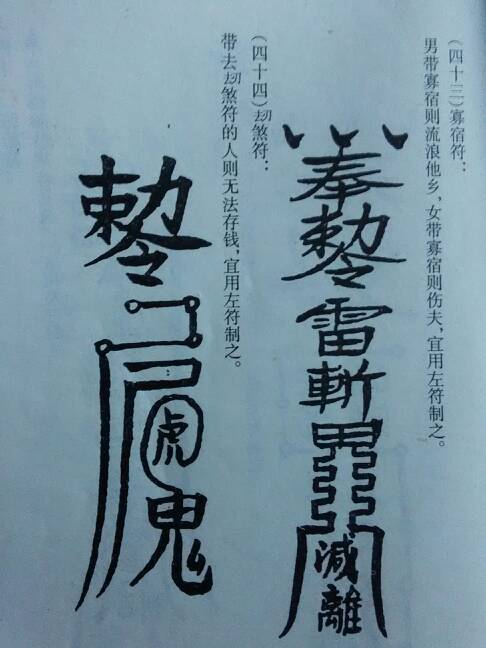 (四十三)寡宿符：
男带寡宿则流浪他乡，女带寡宿则伤夫，宜用左符制之。
奉敕令雷斬
減離
(四十四)劫煞符：
带去劫煞符的人则无法存钱；宜用左符制之。
敕令
虎
鬼